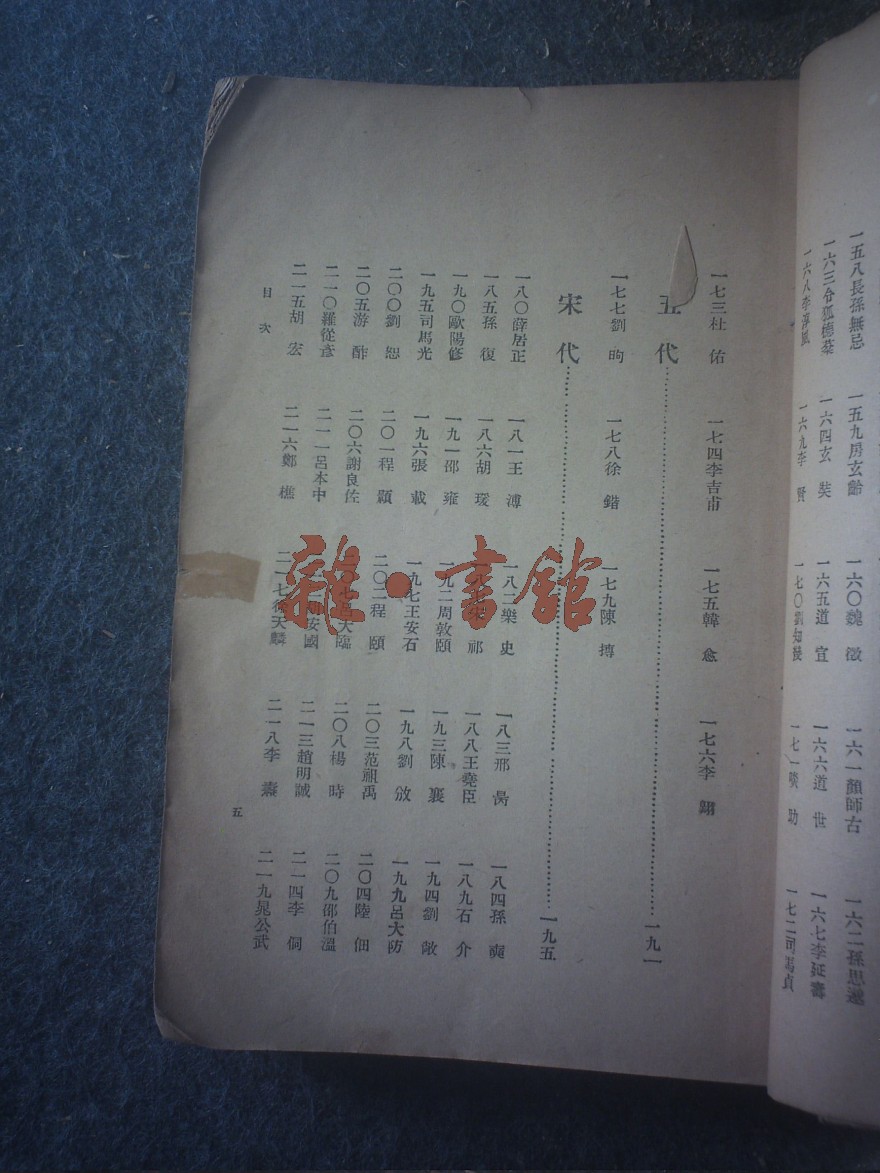 一五八長孫無忌　一五九房玄齡　一六〇魏徵　一六一顏師古　一六二孫思邈
一六三令狐德棻　一六四玄奘　一六五道宣　一六六道世　一六七李延壽
一六八李淳風　一六九李賢　一七〇劉知幾　一七一啖助　一七二司馬貞
一七三杜佑　一七四李吉甫　一七五韓愈　一七六李翺
五代……一九一
一七七劉昫　一七八徐鍇　一七九陳摶
宋代……一九五
一八〇薛居正　一八一王溥　一八二樂史　一八三邢昺　一八四孫奭
一八五孫復　一八六胡瑗　一八七宋祁　一八八王堯臣　一八九石介
一九〇歐陽修　一九一邵雍　一九二周敦頤　一九三陳襄　一九四劉敞
一九五司馬光　一九六張載　一九七王安石　一九八劉攽　一九九呂大防
二〇〇劉恕　二〇一程顥　二〇二程頤　二〇三范祖禹　二〇四陸佃
二〇五游酢　二〇六謝良佐　二〇七呂大臨　二〇八楊時　二〇九邵伯溫
二一〇羅從彥　二一一呂本中　胡安國　二一三趙明誠　二一四李侗
二一五胡宏　二一六鄭樵　二一七徐天麟　二一八李燾　二一九晁公武
目次
五
雜·書館